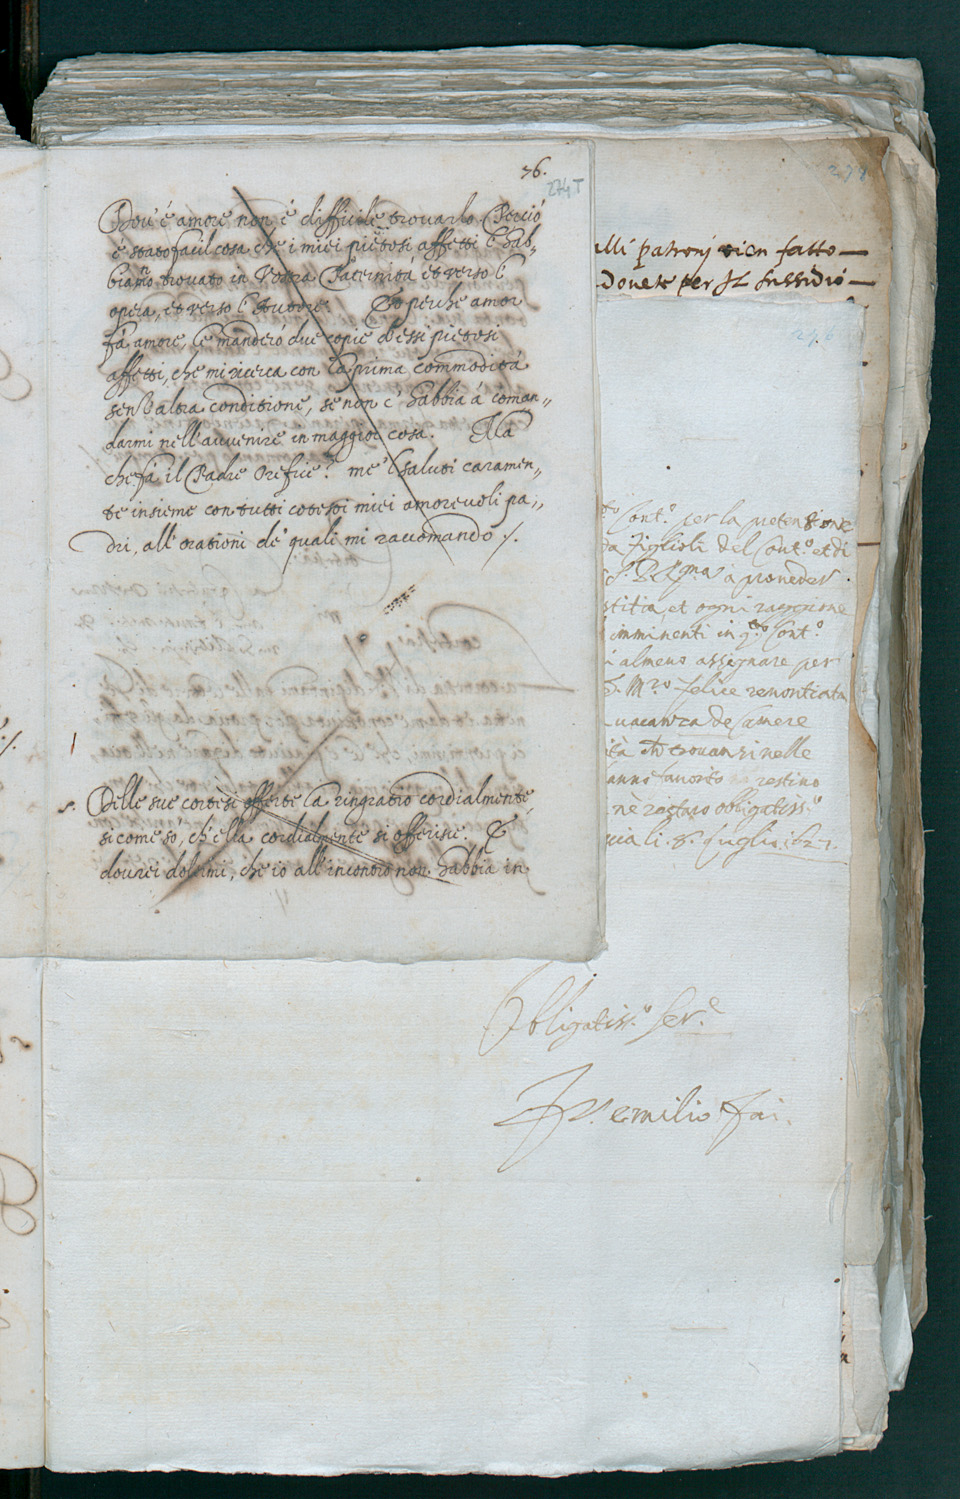 76.
274T
Dov' é amore non é difficile trovarlo. Perció
é stato facil cosa che i miei pietosi affetti l'hab-
biano trovato in Vostra Paternitá et verso l'
opera, et verso l'Autore. Et perche amor
fá amore, le manderó due copie d'essi pietosi
affetti, che mi ricerca con la prima commoditá
senz'altra conditione, se non c'habbia á coman-
darmi nell'avvenire in maggior cosa. Ma
che fá il Padre Orefice? me'l saluti caramen-
te insieme con tutti cotesti miei amorevoli pa-
dri, all'orationi de' quali mi racomando ./.
Delle sue cortesi offerte la ringratio cordialmente,
si come só, ch'ella cordialmente si offerisce. Et
dovrei dolermi, che io all'incontro non habbia in
278
alli patronj vien fatto
Dovete per Il sussidio
276
Cont.º per la pretensione
figlioli del Cont.º et di
à proveder
stitia, et ogni raggione
imminenti in q.to Cont.º
almeno assegnare per
S. M.ro felice renontiata
vacanza de Camere
trovansi nelle
anno favorito restino
nè restaro obligatiss.º
li .8. luglio .1627.
Obligatiss.º Ser.e
emilio fai.